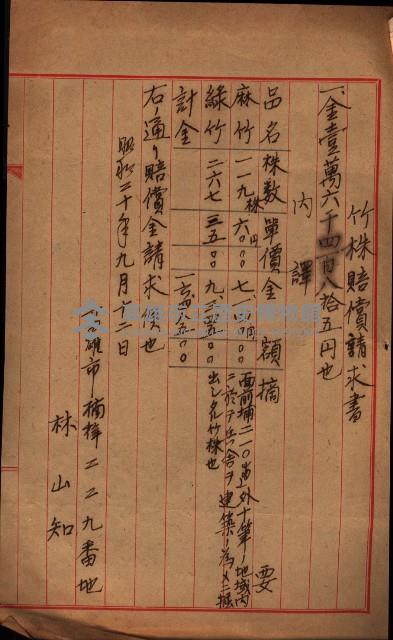 竹株賠償請求書
一、金壹萬六千四百八拾五円也
内譯
品名 株数 單價 金額 摘要
麻竹 一一九株 六〇円〇〇 七一四〇円〇〇
面前埔二一〇ノ 外十筆ノ地域内
ニ於テ兵舎ヲ建築ノ為メニ掘
出シタル竹株也
綠竹 二六七 三五〇〇 九三四五〇〇
計金 一六四八五〇〇
右ノ通リ賠償金請求候也
昭和二十年九月十二日
高雄市楠梓二二九番地
林山知